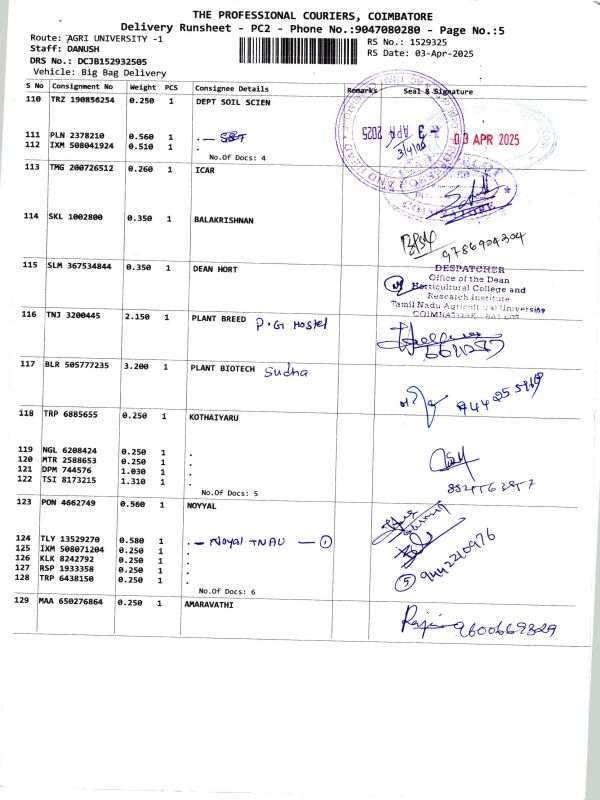 THE PROFESSIONAL COURIERS, COIMBATORE
Delivery Runsheet - PC2 - Phone No.:9047080280 - Page No.:5
Route: AGRI UNIVERSITY -1
RS No.: 1529325
Staff: DANUSH
RS Date: 03-Apr-2025
DRS No.: DCJB152932505
Vehicle: Big Bag Delivery
S No Consignment No Weight PCS Consignee Details Remarks Seal & Signature
110 TRZ 190856254 0.250 1 DEPT SOIL SCIEN
3 APR 2025
03 APR 2025
3/4/25
111 PLN 2378210 0.560 1 .
112 IXM 508041924 0.510 1 .
No.Of Docs: 4
113 TMG 200726512 0.260 1 ICAR
114 SKL 1002800 0.350 1 BALAKRISHNAN
9786904304
115 SLM 367534844 0.350 1 DEAN HORT
DESPATCHER
Office of the Dean
Horticultural College and
Research Institute
Tamil Nadu Agricultural University
COIMBATORE - 641 003
116 TNJ 3200445 2.150 1 PLANT BREED P.G Hostel
117 BLR 505777235 3.200 1 PLANT BIOTECH Sudha
118 TRP 6885655 0.250 1 KOTHAIYARU
119 NGL 6208424 0.250 1 .
120 MTR 2588653 0.250 1 .
121 DPM 744576 1.030 1 .
122 TSI 8173215 1.310 1 .
No.Of Docs: 5
123 PON 4662749 0.560 1 NOYYAL
124 TLY 13529270 0.580 1 . - Noyal TNAU - 1
125 IXM 508071204 0.250 1 .
126 KLK 8242792 0.250 1 .
127 RSP 1933358 0.250 1 .
128 TRP 6438150 0.250 1 .
5 9442210976
No.Of Docs: 6
129 MAA 650276864 0.250 1 AMARAVATHI
9600669329